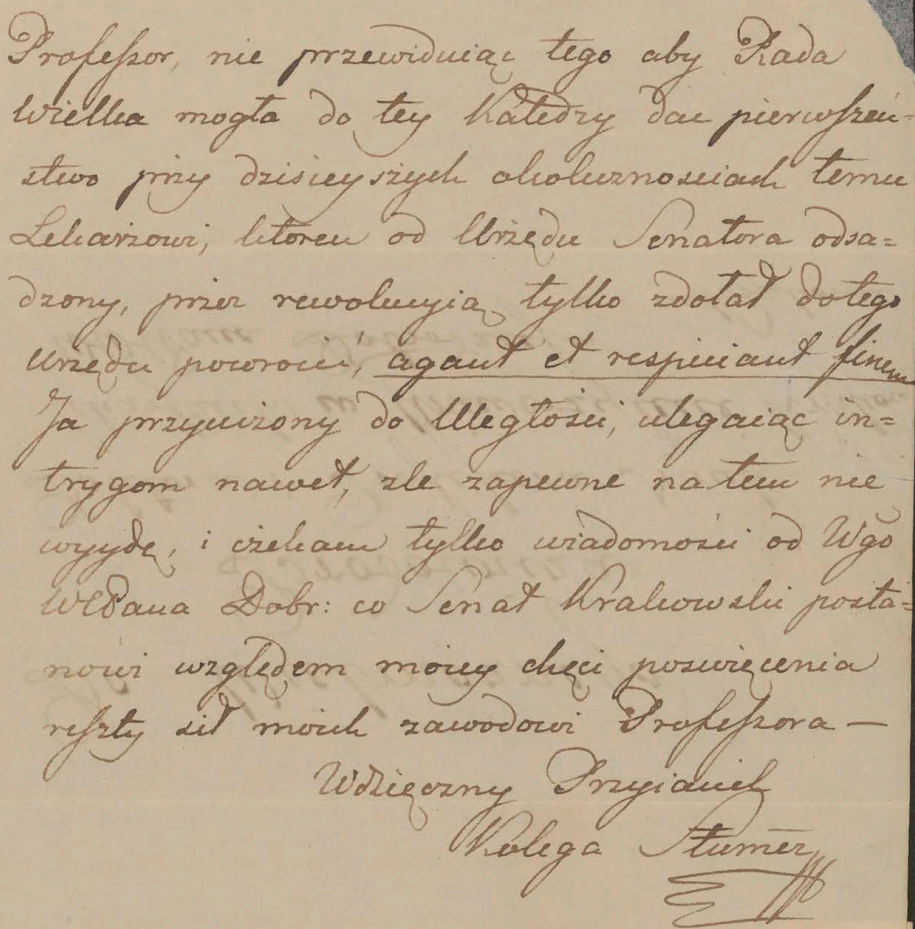 Professor, nie przewiduiąc tego aby Rada
Wielka mogła do tey Katedry dac pierwszeń=
stwo przy dzisieyszych okolicznosciach temu
Lekarzowi, ktoren od Urzędu Senatora odsa=
dzony, przez rewolucyią tylko zdołał do tego
urzędu powrocić, agant et respiciant finem
Ja przyuczony do Uległości, ulegaiąc in=
trygom nawet, zle zapewne na tem nie
wyydę, i czekam tylko wiadomości od Wgo
WPana Dobr: co Senat Krakowski posta=
nowi względem moiey chęci poswięcenia
reszty sił moich zawodowi Professora —
Wdzięczny Przyiaciel
Kolega Stumer